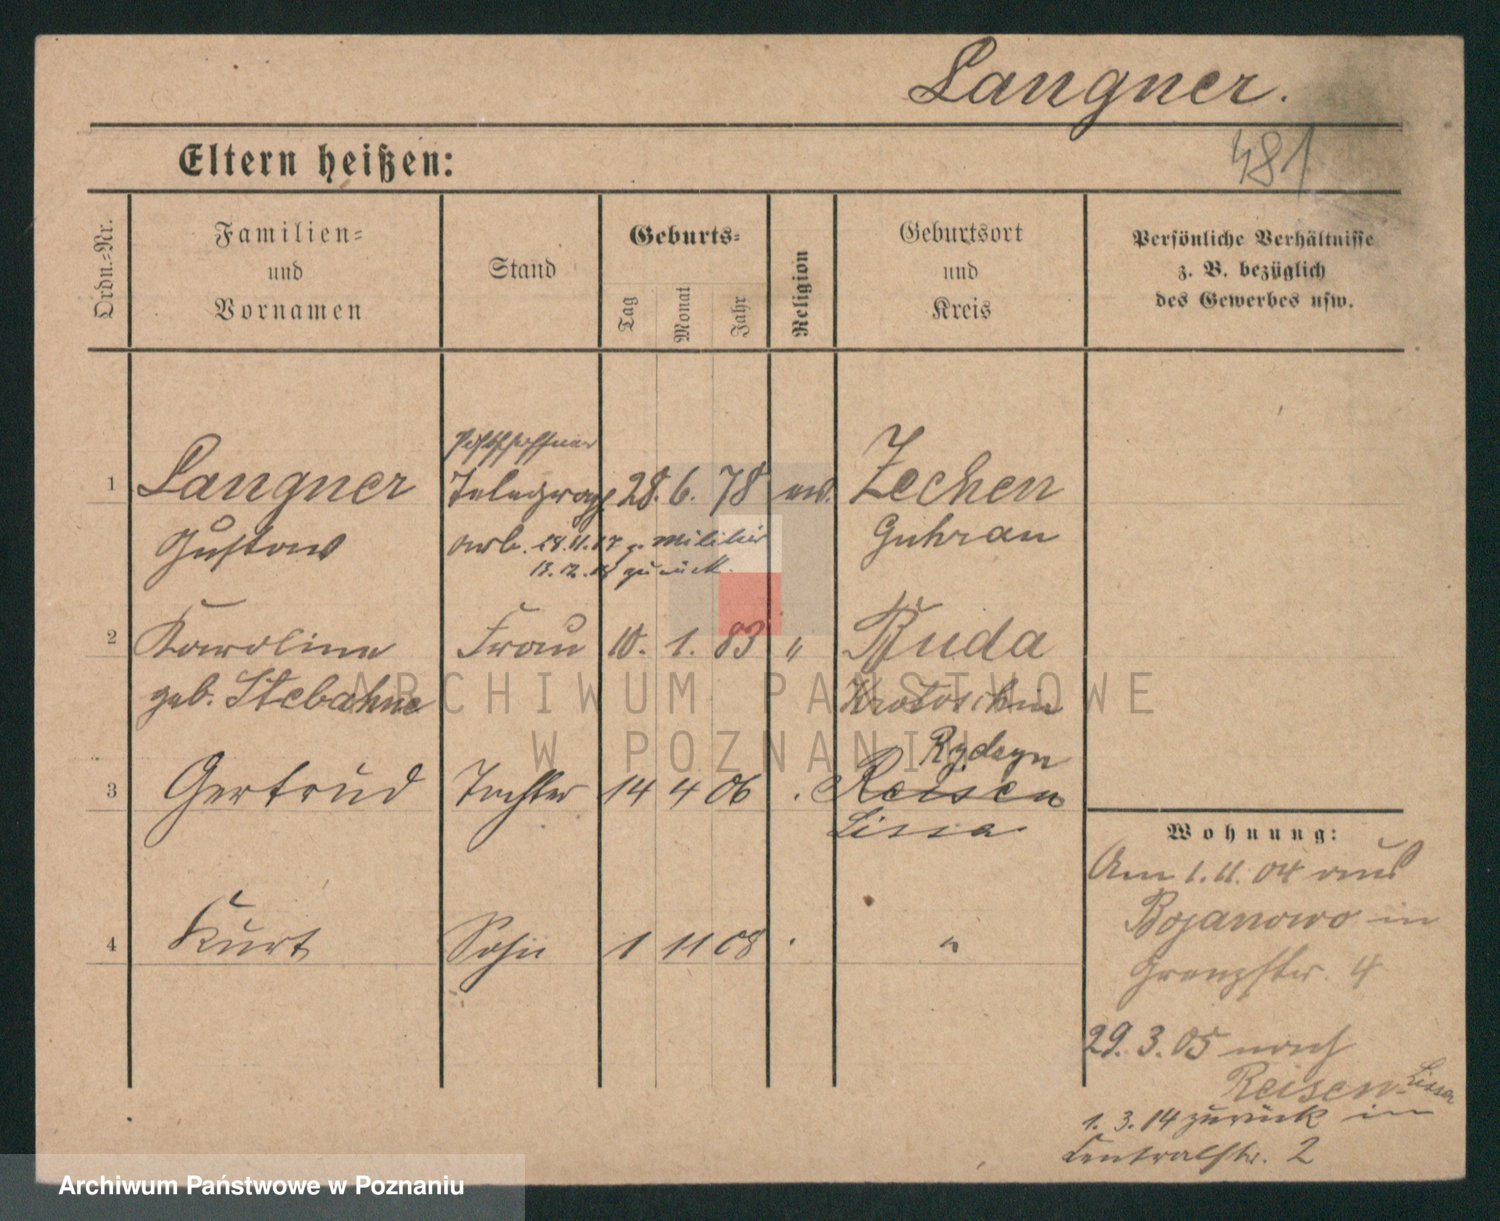 Langner.
481
Eltern heißen:
Ordn.-Nr.
Familien-
und
Vornamen
Stand
Geburts-
Tag
Monat
Jahr
Religion
Geburtsort
und
Kreis
Persönliche Verhältnisse
z. B. bezüglich
des Gewerbes usw.
Postschaffner
1 Langner Telegraph 28. 6. 78 ev. Zechen
Gustav arb. 28.11.17 z. Militär Guhrau
13.12.18 zurück.
2 Karoline Frau 10. 1. 83 " Buda
geb. Stebahne Krotoschin
Rydzyn
3 Gertrud Tochter 14 4 06 Reisen
Lissa
4 Kurt Sohn 1 11 08 "
Wohnung:
Am 1.11.04 aus
Bojanowo in
Grenzstr. 4
29.3.05 nach
Reisen-Lissa
1.3.14 zurück in
Centralstr. 2
ARCHIWUM PAŃSTWOWE
W POZNANIU
Archiwum Państwowe w Poznaniu